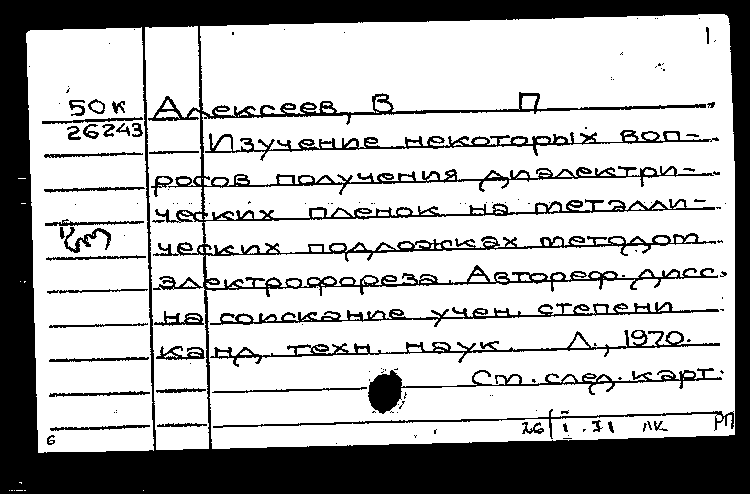 1
50к Алексеев, В П
26243 Изучение некоторых воп-
росов получения диэлектри-
ческих пленок на металли-
ческих подложках методом
электрофореза. Автореф. дисс.
на соискание учен. степени
канд. техн. наук. Л., 1970.
См. след. карт.
26/I.71 лк РП
6